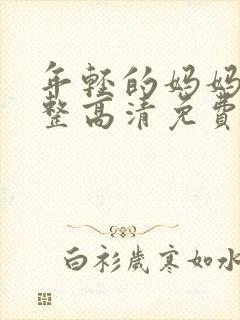 年轻的妈妈
整高清免費
白衫歲寒如水